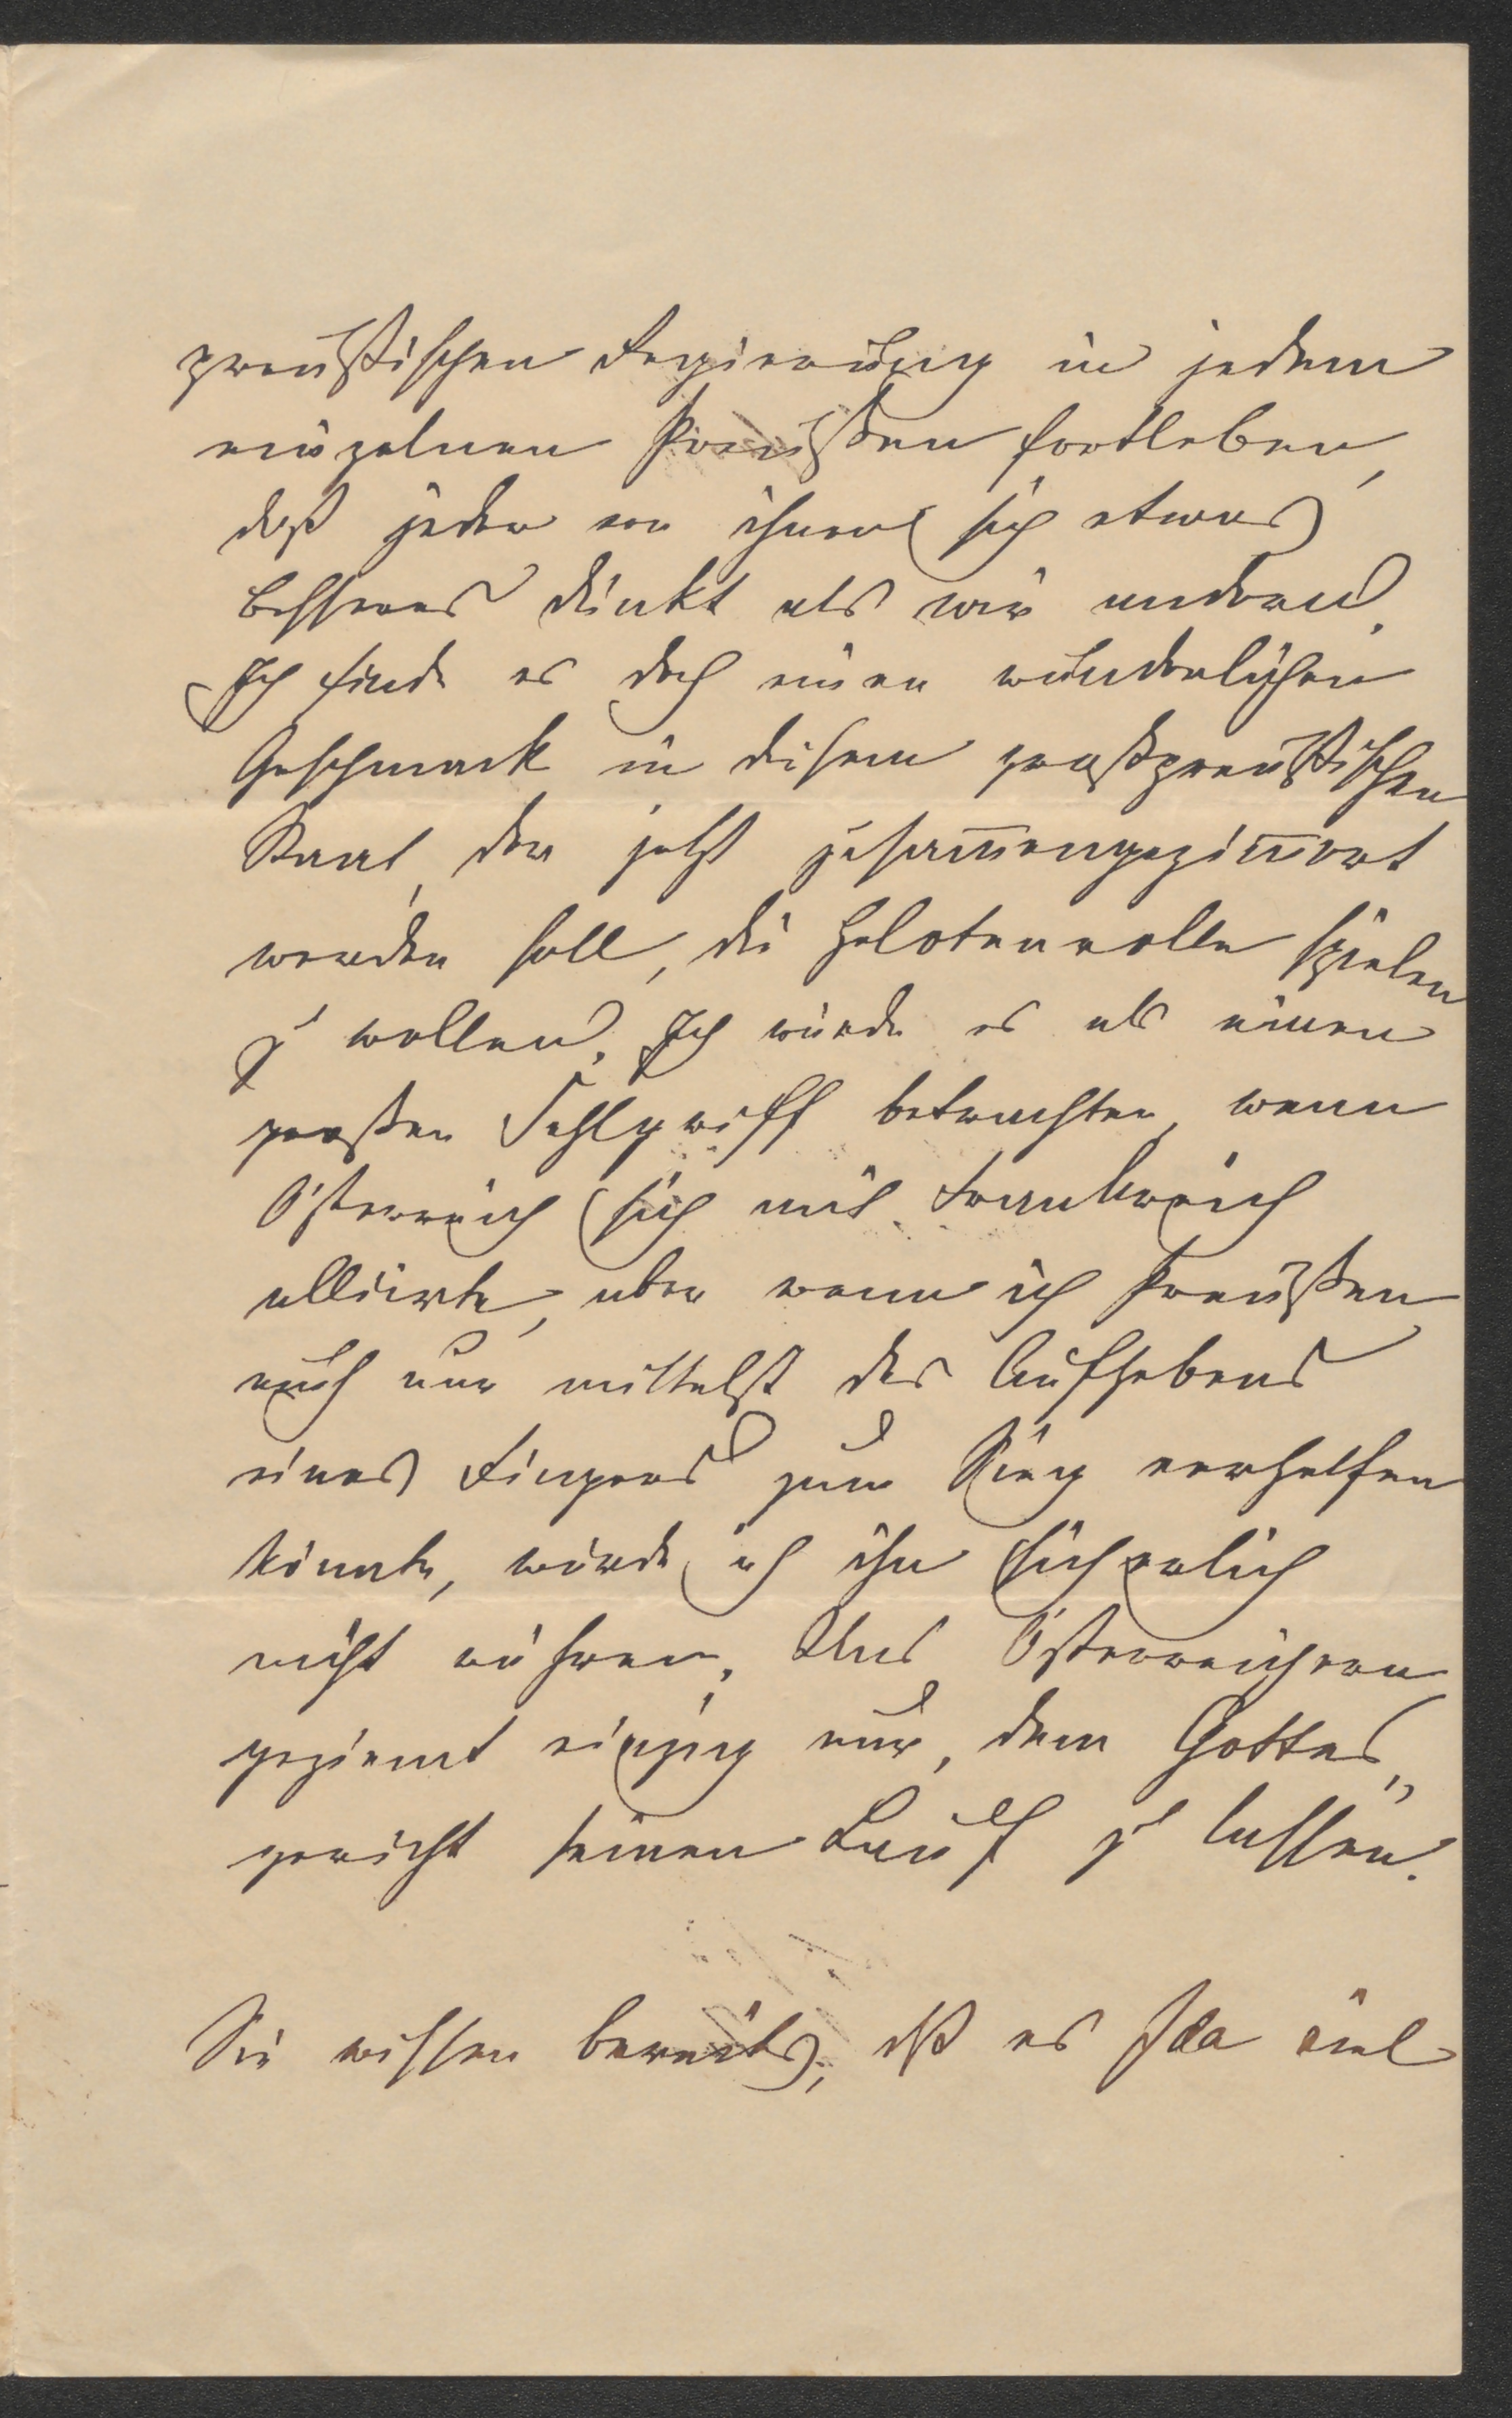 preußischen Regierung in jedem
einzelnen Preußen fortleben,
daß jeder von ihnen sich etwas
besseres dünkt als wir andern.
Ich finde es doch einen wunderlichen
Geschmack in diesem großpreußischen
Staat, der jetzt zusam̅engezim̅ert
werden soll, die Helotenrolle spielen
zu wollen. Ich würde es als einen
großen Fehlgriff betrachten, wenn
Österreich sich mit Frankreich
alliirte, aber wenn ich Preußen
auch nur mittelst des Aufhebens
eines Fingers zum Sieg verhelfen
könnte, würde ich ihn sicherlich
nicht rühren. Uns Österreichern
geziemt einzig nur, dem Gottes„
gericht seinen Lauf zu lassen.
Sie wissen bereits, dß es Ida viel